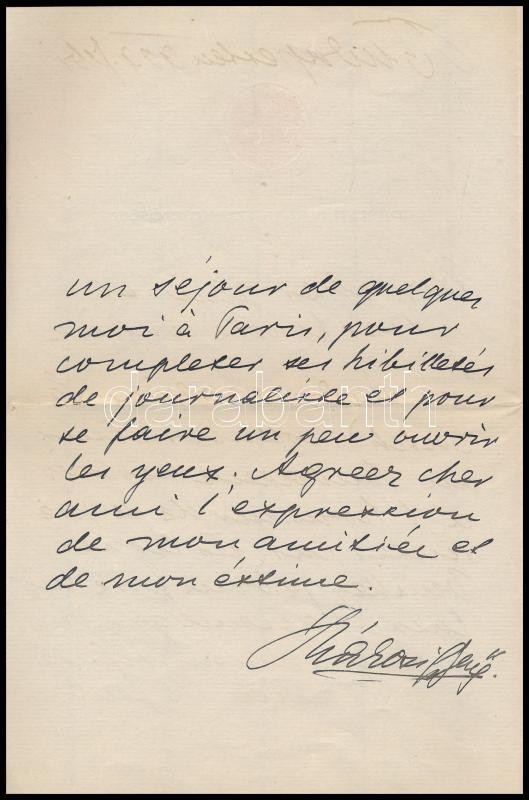 un séjour de quelques
moi à Paris, pour
completer ses hibilletés
de journaliste et pour
se faire un peu ouvrir
les yeux. Agreez cher
ami l'expression
de mon amitiée et
de mon éstime.
Rákosi Jenő.
darabanth